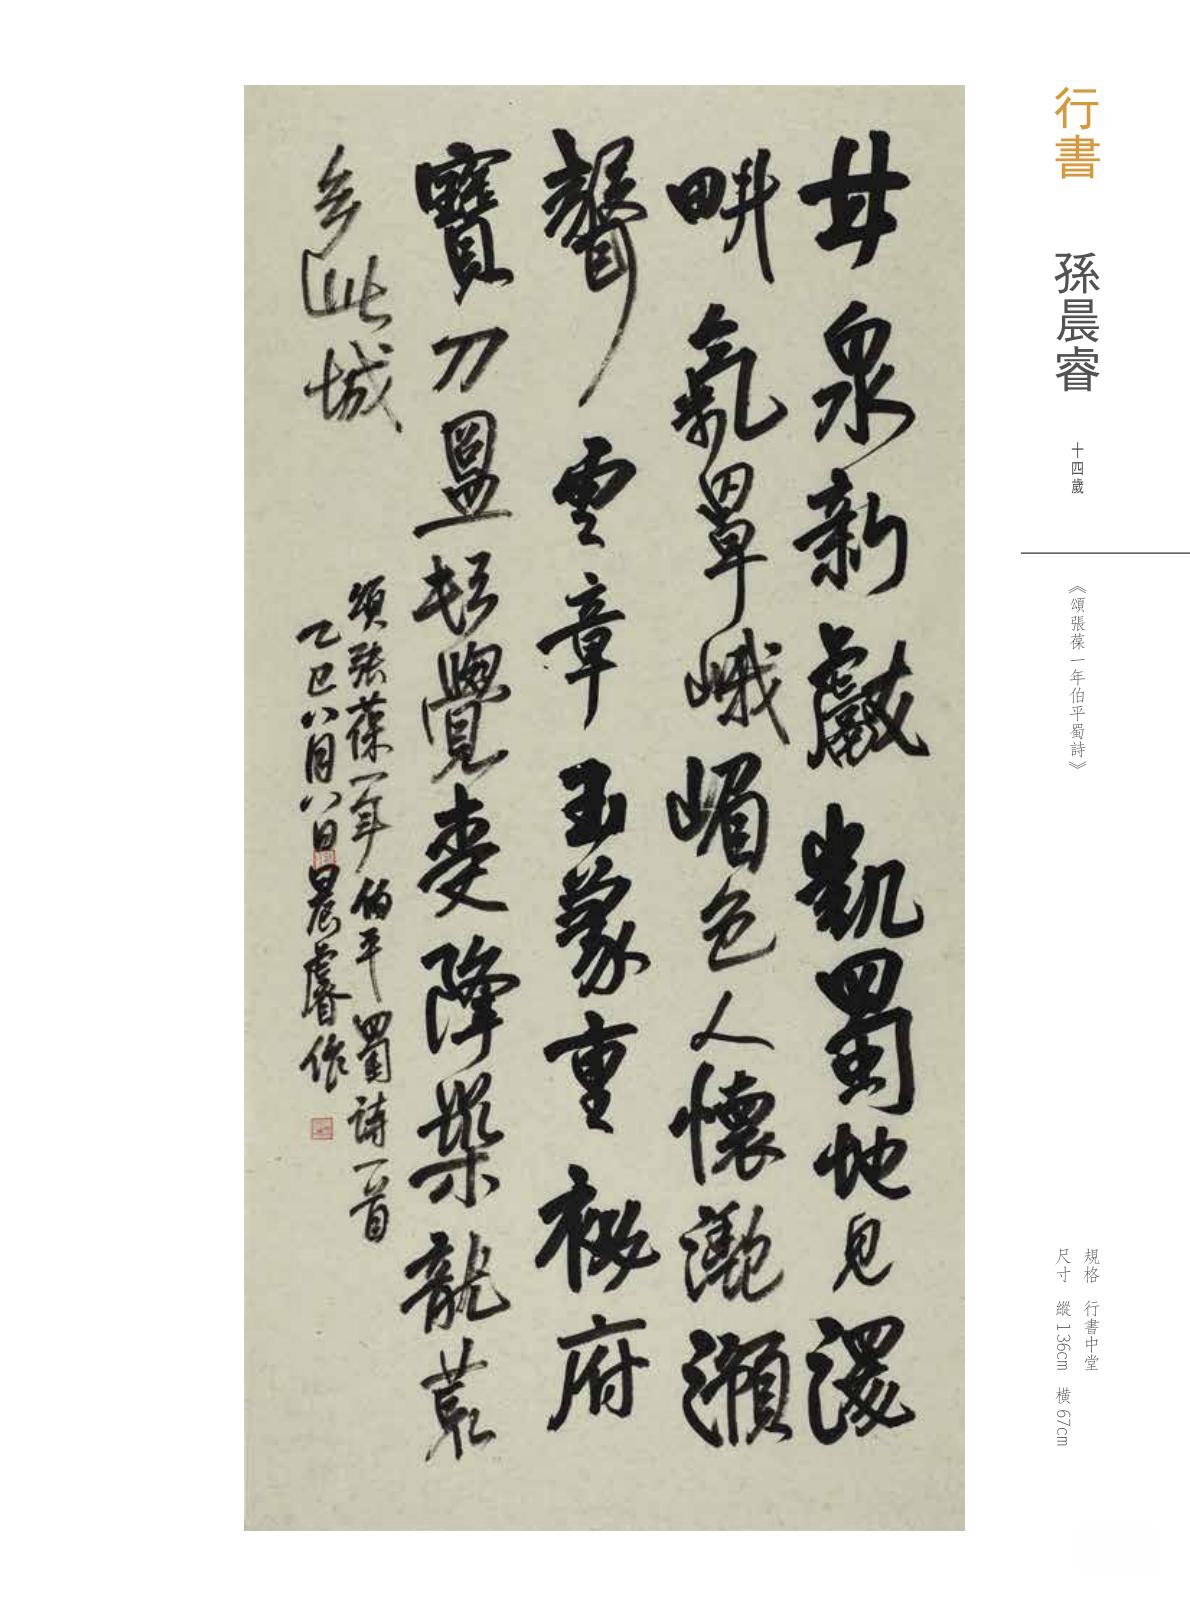 行書
孫晨睿
十四歲
《頌張葆一年伯平蜀詩》
規格 行書中堂
尺寸 縱136cm 橫67cm
甘泉新獻凱蜀地見還
畊氣罩峨嵋色人懷灔澦
聲雲章玉篆重祕府
寶刀盟頓覺受降築龍荒
多此城
頌張葆一年伯平蜀詩一首
乙巳八月八日晨睿作